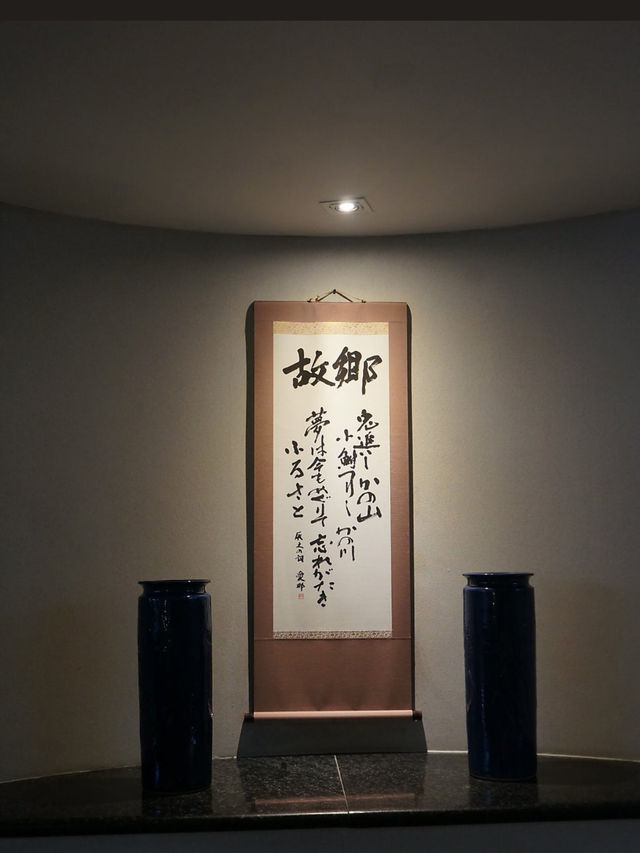 故郷
兎追いしかの山
小鮒つりしかの川
夢は今もめぐりて忘れがたき
ふるさと
辰之の詞